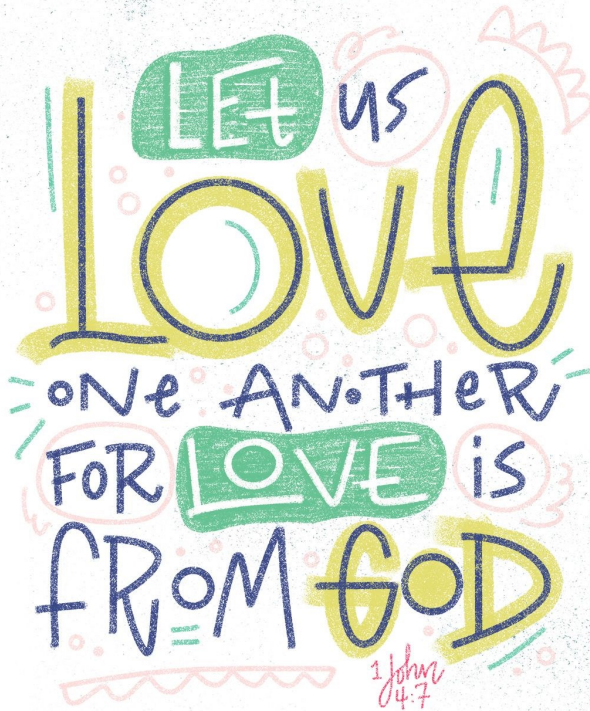 LEt us
Love
oNe ANoTHeR
FoR LOVE is
fRoM GoD
1 John
4:7